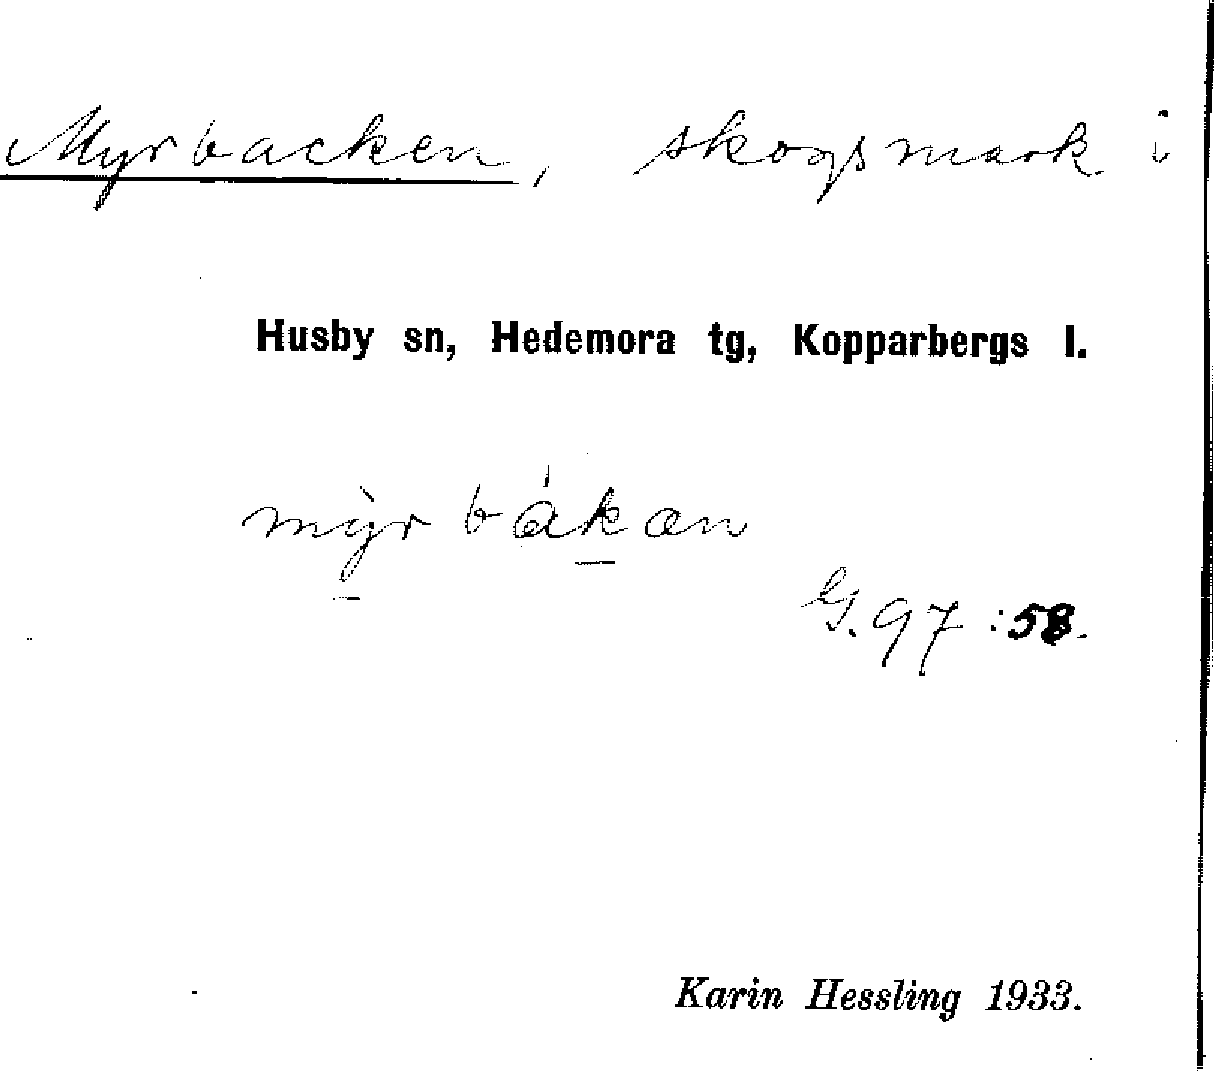 Myrbacken, skogsmark i
Husby sn, Hedemora tg, Kopparbergs l.
mỳr bákan
G. 97:58.
Karin Hessling 1933.